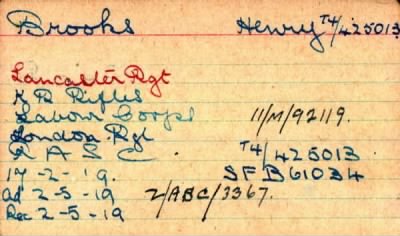 Brooks Henry T4/425013
Lancaster Rgt
K R Rifles
Labour Corps 11/M/92119.
London Rgt
R A S C T4/425013
17-2-19. S F B 61034
Ad 2-5-19 2/ABC/3367.
Rec 2-5-19